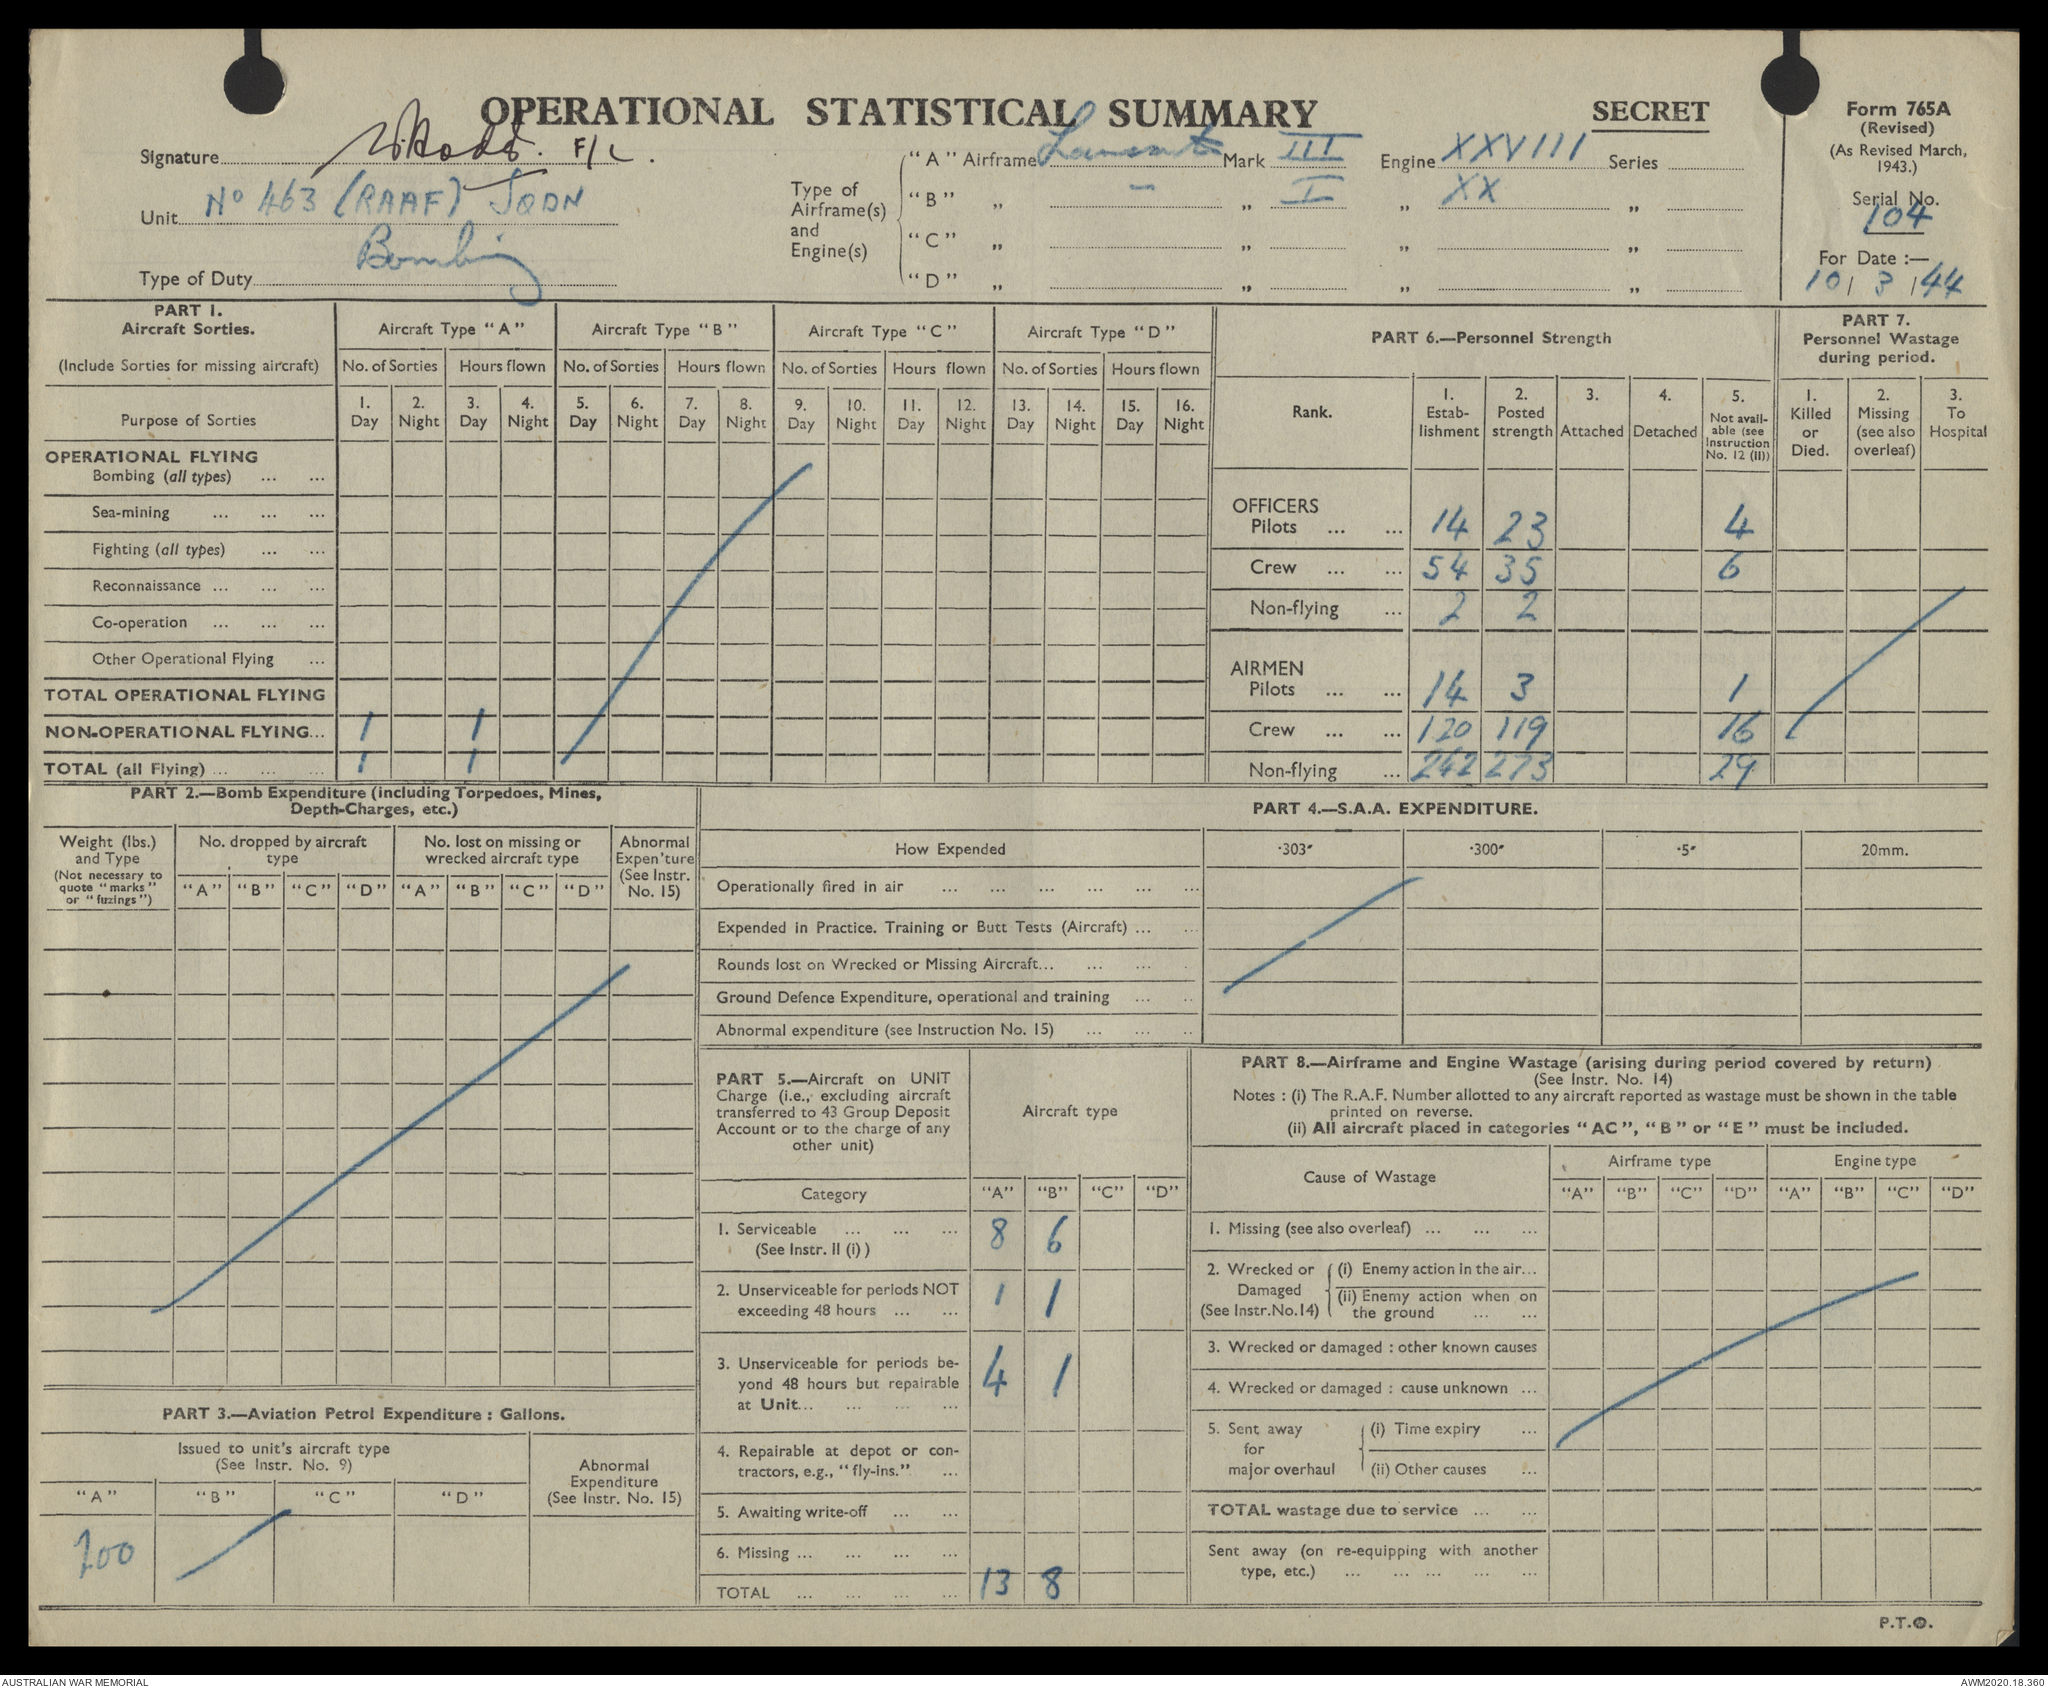 OPERATIONAL STATISTICAL SUMMARY
SECRET
Form 765A
(Revised)
(As Revised March,
1943.)
Serial No.
104
For Date :—
10/ 3 /44
Signature F/L.
Unit No 463 (RAAF) SQDN
Type of Duty Bombing
Type of
Airframe(s)
and
Engine(s)
"A" Airframe Lancaster Mark III Engine XXVIII Series
"B" „ — „ I „ XX „
"C" „ „ „ „
"D" „ „ „ „
PART 1.
Aircraft Sorties.
(Include Sorties for missing aircraft)
Purpose of Sorties
Aircraft Type "A" Aircraft Type "B" Aircraft Type "C" Aircraft Type "D"
No. of Sorties Hours flown No. of Sorties Hours flown No. of Sorties Hours flown No. of Sorties Hours flown
1. 2. 3. 4. 5. 6. 7. 8. 9. 10. 11. 12. 13. 14. 15. 16.
Day Night Day Night Day Night Day Night Day Night Day Night Day Night Day Night
OPERATIONAL FLYING
Bombing (all types) ... ...
Sea-mining ... ... ...
Fighting (all types) ... ...
Reconnaissance ... ... ...
Co-operation ... ... ...
Other Operational Flying ...
TOTAL OPERATIONAL FLYING
NON-OPERATIONAL FLYING... 1 1
TOTAL (all Flying) ... ... ... 1 1
PART 6.—Personnel Strength
Rank.
1. Estab-lishment
2. Posted strength
3. Attached
4. Detached
5. Not avail-able (see Instruction No. 12 (II))
OFFICERS
Pilots ... ... 14 23 4
Crew ... ... 54 35 6
Non-flying ... 2 2
AIRMEN
Pilots ... ... 14 3 1
Crew ... ... 120 119 16
Non-flying ... 242 273 29
PART 7.
Personnel Wastage
during period.
1. Killed or Died.
2. Missing (see also overleaf)
3. To Hospital
PART 2.—Bomb Expenditure (including Torpedoes, Mines,
Depth-Charges, etc.)
Weight (lbs.)
and Type
(Not necessary to
quote "marks"
or "fuzings")
No. dropped by aircraft
type
No. lost on missing or
wrecked aircraft type
Abnormal
Expen'ture
(See Instr.
No. 15)
"A" "B" "C" "D" "A" "B" "C" "D"
PART 3.—Aviation Petrol Expenditure : Gallons.
Issued to unit's aircraft type
(See Instr. No. 9)
Abnormal
Expenditure
(See Instr. No. 15)
"A" "B" "C" "D"
700
PART 4.—S.A.A. EXPENDITURE.
How Expended ·303" ·300" ·5" 20mm.
Operationally fired in air ... ... ... ... ... ...
Expended in Practice. Training or Butt Tests (Aircraft) ... ...
Rounds lost on Wrecked or Missing Aircraft... ... ... .
Ground Defence Expenditure, operational and training ... ..
Abnormal expenditure (see Instruction No. 15) ... ... ..
PART 5.—Aircraft on UNIT
Charge (i.e., excluding aircraft
transferred to 43 Group Deposit
Account or to the charge of any
other unit)
Aircraft type
Category "A" "B" "C" "D"
1. Serviceable ... ... ... 8 6
(See Instr. II (i) )
2. Unserviceable for periods NOT
exceeding 48 hours ... ... 1 1
3. Unserviceable for periods be-
yond 48 hours but repairable
at Unit... ... ... ... 4 1
4. Repairable at depot or con-
tractors, e.g., "fly-ins." ...
5. Awaiting write-off ... ...
6. Missing ... ... ... ...
TOTAL ... ... ... ... 13 8
PART 8.—Airframe and Engine Wastage (arising during period covered by return)
(See Instr. No. 14)
Notes : (i) The R.A.F. Number allotted to any aircraft reported as wastage must be shown in the table
printed on reverse.
(ii) All aircraft placed in categories "AC", "B" or "E" must be included.
Cause of Wastage
Airframe type Engine type
"A" "B" "C" "D" "A" "B" "C" "D"
1. Missing (see also overleaf) ... ... ...
2. Wrecked or
Damaged
(See Instr.No.14)
(i) Enemy action in the air...
(ii) Enemy action when on
the ground ... ...
3. Wrecked or damaged : other known causes
4. Wrecked or damaged : cause unknown ...
5. Sent away
for
major overhaul
(i) Time expiry ...
(ii) Other causes ...
TOTAL wastage due to service ... ...
Sent away (on re-equipping with another
type, etc.) ... ... ... ... ...
P.T.O.
AUSTRALIAN WAR MEMORIAL
AWM2020.18.360